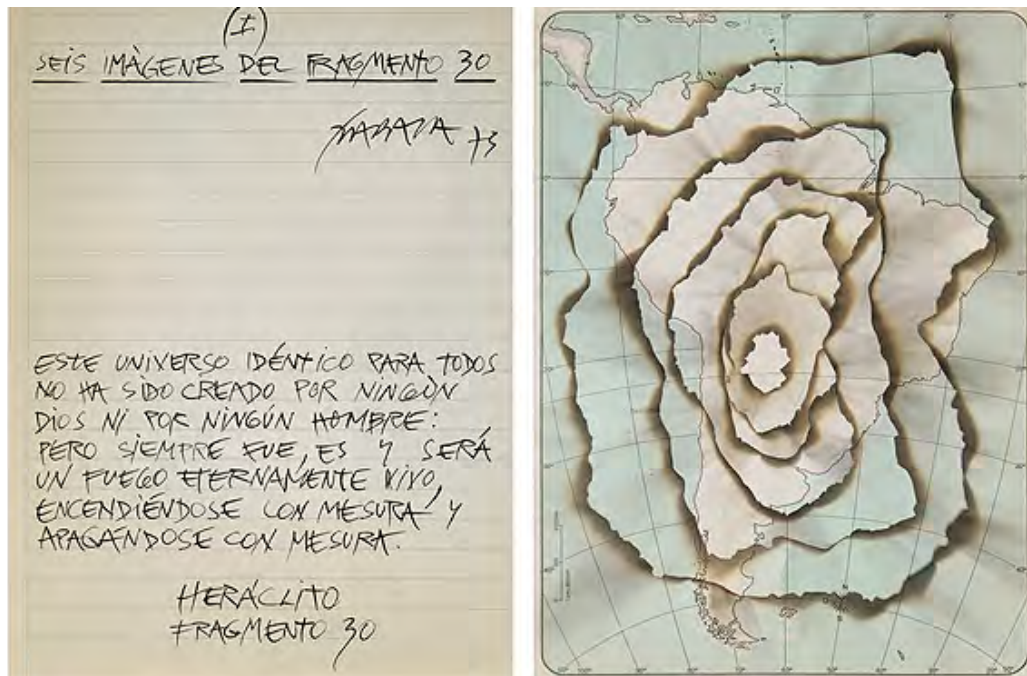 (I)
SEIS IMÀGENES DEL FRAGMENTO 30
ZABALA 73
ESTE UNIVERSO IDÉNTICO PARA TODOS
NO HA SIDO CREADO POR NINGÚN
DIOS NI POR NINGÚN HOMBRE:
PERO SIEMPRE FUE, ES Y SERÁ
UN FUEGO ETERNAMENTE VIVO,
ENCENDIÉNDOSE CON MESURA Y
APAGÁNDOSE CON MESURA.
HERÁCLITO
FRAGMENTO 30